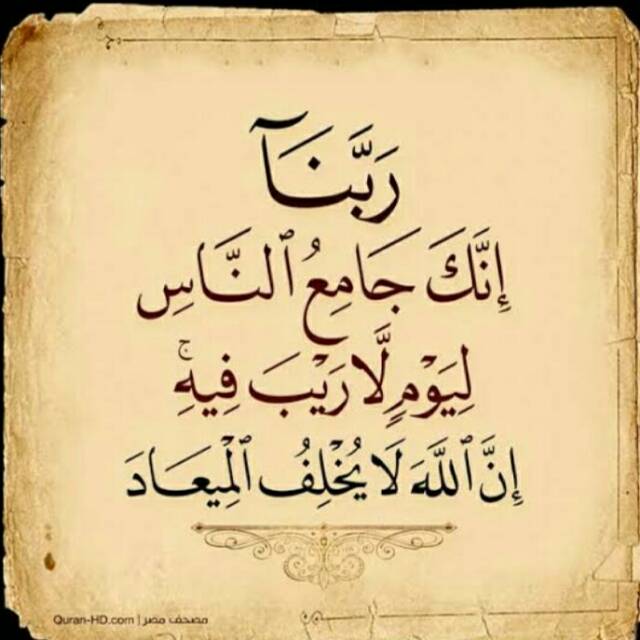 رَبَّنَآ
إِنَّكَ جَامِعُ ٱلنَّاسِ
لِيَوْمٍ لَّا رَيْبَ فِيهِۚ
إِنَّ ٱللَّهَ لَا يُخْلِفُ ٱلْمِيعَادَ
Quran-HD.com | مصحف مصر